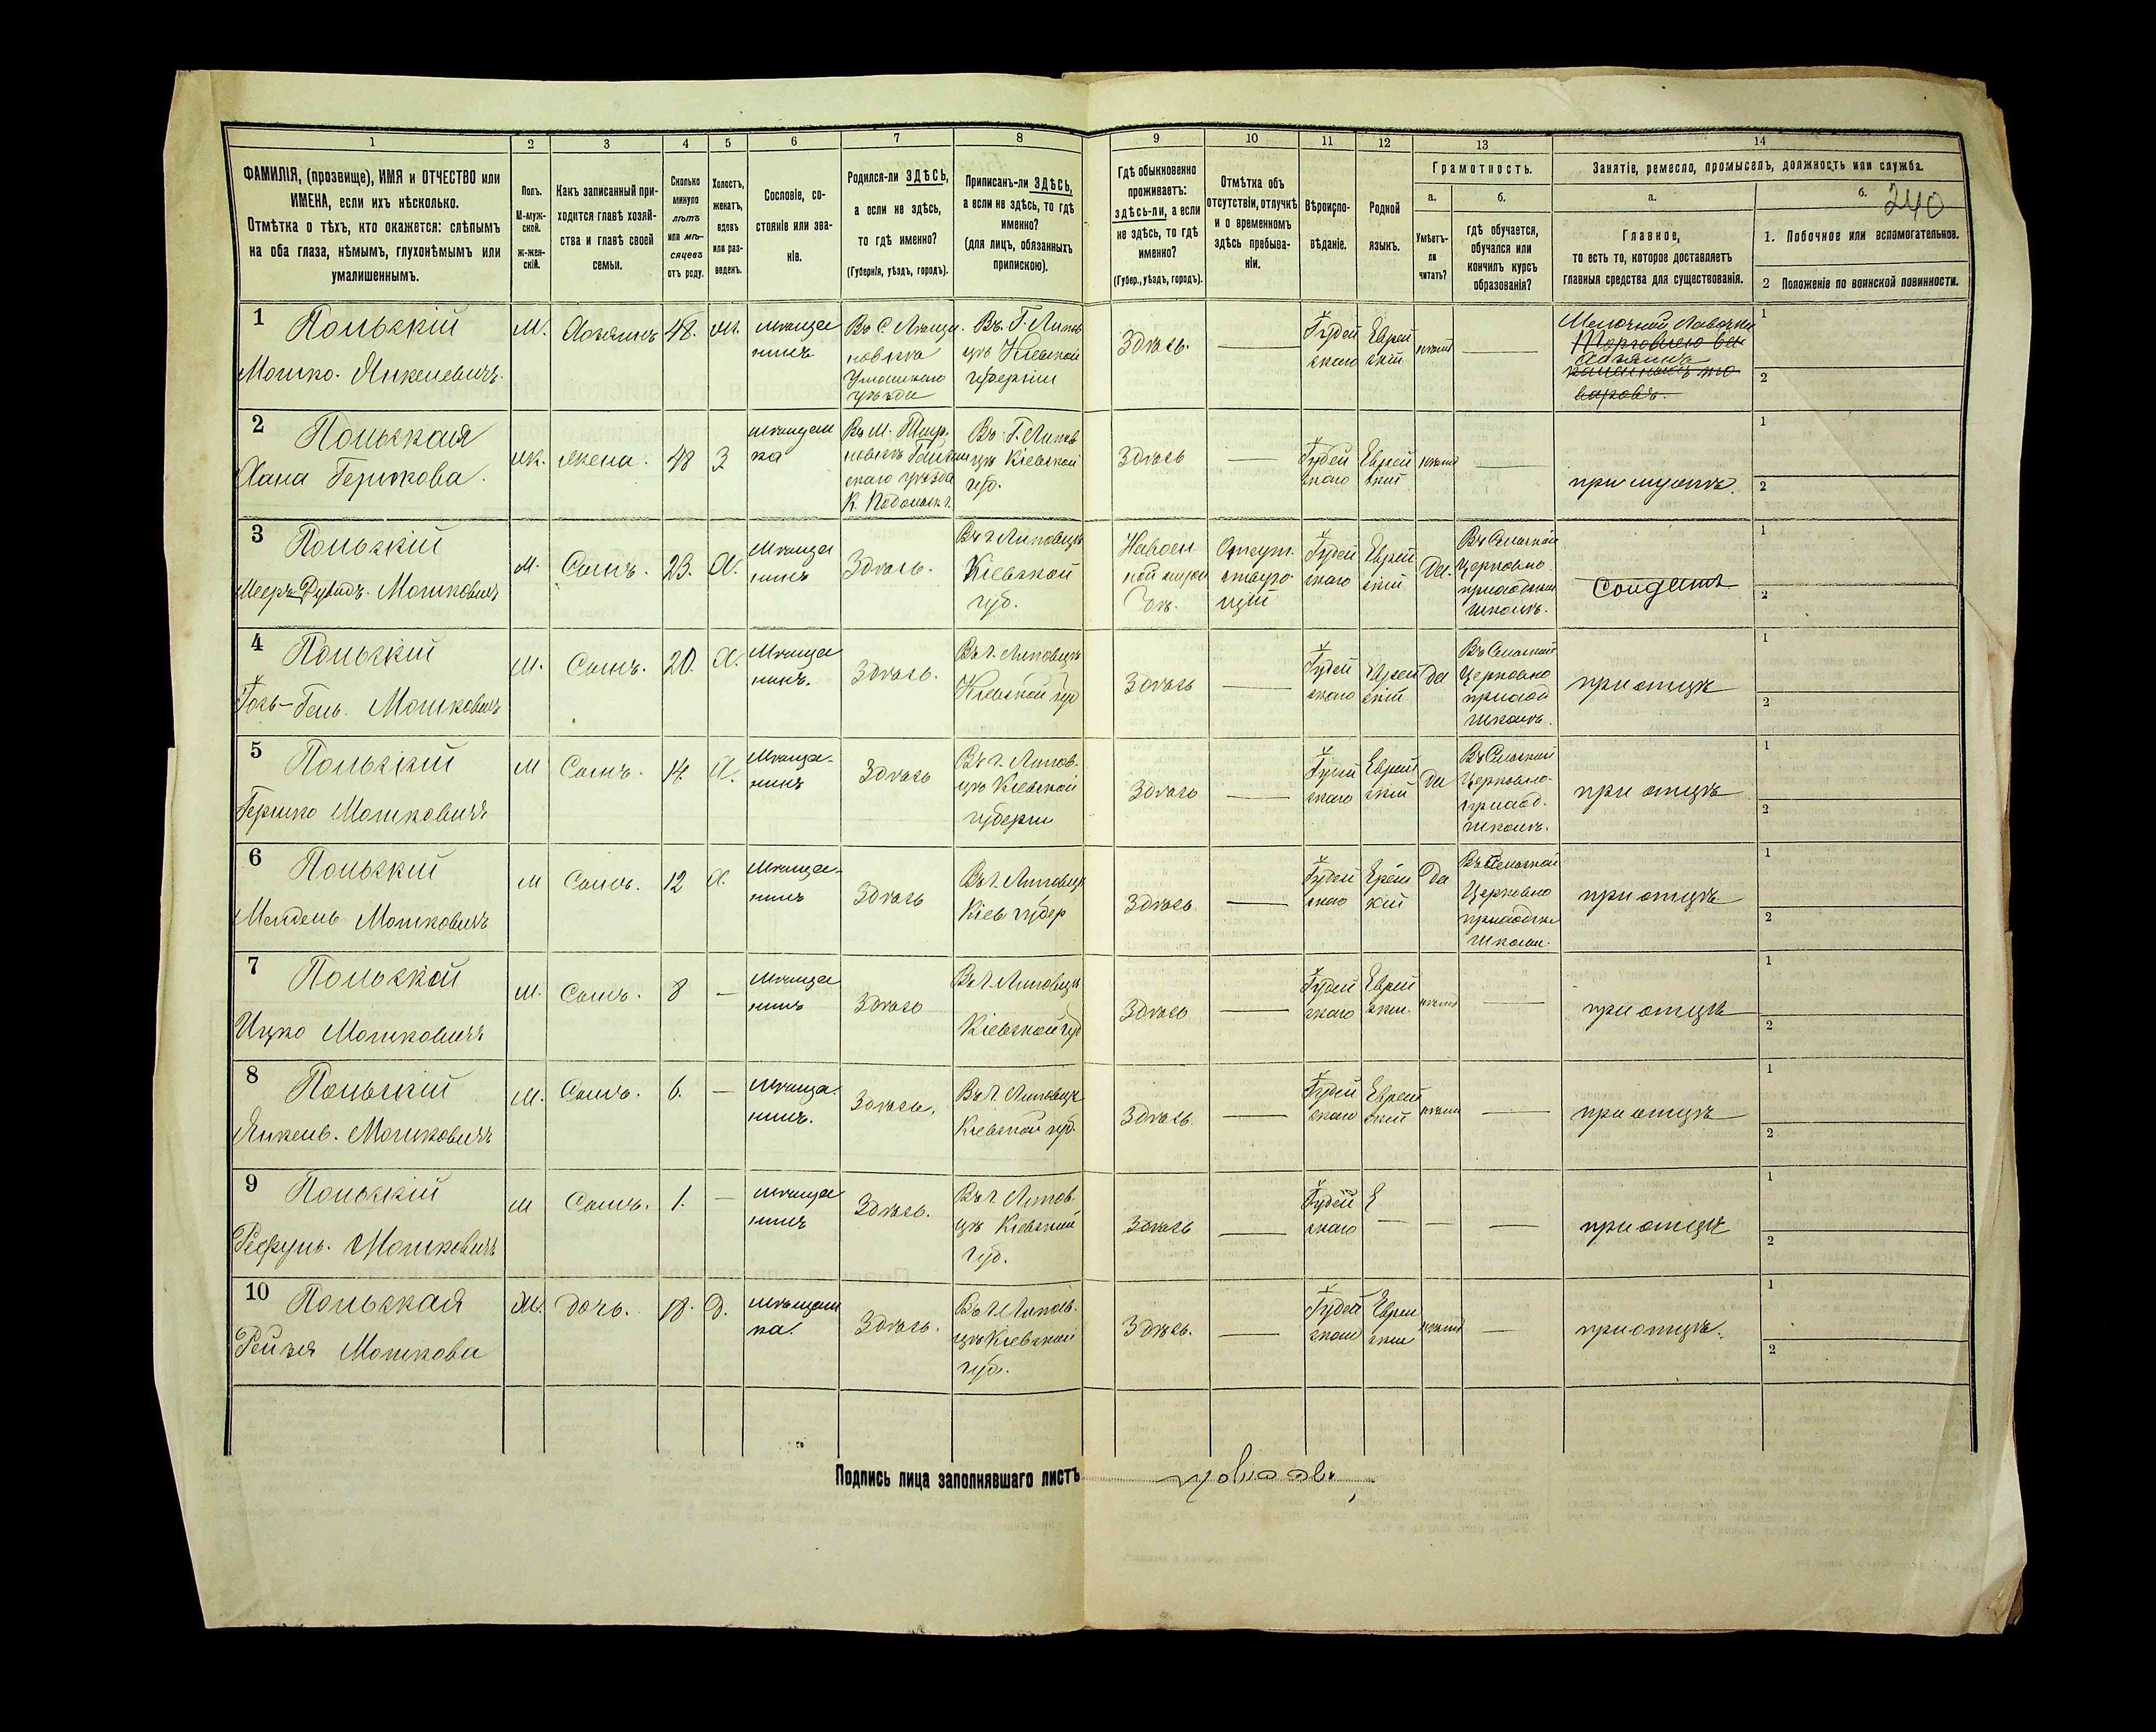 1 2 3 4 5 6 7 8 9 10 11 12 13 14
ФАМИЛІЯ, (прозвище), ИМЯ и ОТЧЕСТВО или
ИМЕНА, если ихъ нѣсколько.
Отмѣтка о тѣхъ, кто окажется: слѣпымъ
на оба глаза, нѣмымъ, глухонѣмымъ или
умалишеннымъ.
Полъ.
М-муж-
ской.
ж-жен-
скій.
Какъ записанный при-
ходится главѣ хозяй-
ства и главѣ своей
семьи.
Сколько
минуло
лѣтъ
или мѣ-
сяцевъ
отъ роду.
Холостъ,
женатъ,
вдовъ
или раз-
веденъ.
Сословіе, со-
стояніе или зва-
ніе.
Родился-ли ЗДѢСЬ,
а если не здѣсь,
то гдѣ именно?
(Губернія, уѣздъ, городъ).
Приписанъ-ли ЗДѢСЬ,
а если не здѣсь, то гдѣ
именно?
(для лицъ, обязанныхъ
припискою).
Гдѣ обыкновенно
проживаетъ:
здѣсь-ли, а если
не здѣсь, то гдѣ
именно?
(Губер., уѣздъ, городъ).
Отмѣтка объ
отсутствіи, отлучкѣ
и о временномъ
здѣсь пребыва-
ніи.
Вѣроиспо-
вѣданіе.
Родной
языкъ.
Грамотность.
а.
Умѣетъ-
ли
читать?
б.
гдѣ обучается,
обучался или
кончилъ курсъ
образованія?
Занятіе, ремесло, промыселъ, должность или служба.
а.
Главное,
то есть то, которое доставляетъ
главныя средства для существованія.
б.
240
1. Побочное или вспомогательное.
2 Положеніе по воинской повинности.
1 Польскій
Мошко. Янкелевичъ.
М.
Хозяинъ
48.
мѣща
нинъ
Уманскаго
уѣзда
Въ. Г. Липов
цѣ Кіевской
губерніи
Здѣсь.
Іудей
скаго
Еврей
скій
нѣтъ
Мелочной Лавочки
Торговлею
Хозяинъ
1
2
2 Польская
Хана Гершкова.
ж.
жена.
48
З
мѣщан
ка
Въ Г. Липов
цѣ Кіевской
губ.
Здѣсь
Іудей
скаго
Еврей
скій
нѣтъ
при мужѣ.
1
2
3 Польскій
Мееръ-Дувидъ. Мошковичъ
М.
Сынъ.
23.
Х.
Мѣща
нинъ
Здѣсь.
Въ г Липовцѣ
Кіевской
губ.
Іудей
скаго
Еврей
скій
Да.
Въ Сельской
Церковно
приходской
школѣ.
Солдатъ
1
2
4 Польскій
Іось-Гель. Мошковичъ
М.
Сынъ.
20.
Х.
Мѣща
нинъ.
Здѣсь.
Въ г. Липовцѣ
Кіевской губ
Здѣсь
Іудей
скаго
Еврей
скій
да
Въ Сельской
Церковно
приход
школѣ.
при отцѣ
1
2
5 Польскій
Гершко Мошковичъ
М
Сынъ.
14
Х.
Мѣща-
нинъ
Здѣсь
Въ г. Липов.
цѣ Кіевской
губерни
Здѣсь
Іудей
скаго
Еврей
скій
да
Въ Сельской
Церковно-
приход.
школѣ.
при отцѣ
1
2
6 Польскій
Мендель Мошковичъ
М
Сынъ.
12
Х.
Мѣща-
нинъ
Здѣсь
Въ г. Липовцѣ
Кіев губер
Здѣсь
Іудей
скаго
Ерей
кій
да
Въ Сельской
Церковно
приходской
школѣ.
при отцѣ
1
2
7 Польскій
Ицко Мошковичъ
М.
Сынъ.
8
—
Мѣща
нинъ
Здѣсь
Въ г. Липовцѣ
Кіевской губ
Здѣсь
Іудей
скаго
Еврей
ски.
нѣтъ
при отцѣ
1
2
8 Польскій
Янкель. Мошковичъ
М.
Сынъ.
6.
—
Мѣща
нинъ.
Здѣсь.
Въ г. Липовцѣ
Кіевской губ.
Здѣсь
Іудей
скаго
Еврей
скій
нѣтъ
при отцѣ
1
2
9 Польскій
Рефуль. Мошковичъ
М
Сынъ.
1.
—
мѣща
нинъ
Здѣсь.
Въ г Липов.
цѣ Кіевской
губ.
Здѣсь
Іудей
скаго
Е
при отцѣ
1
2
10 Польская
Рейзя Мошкова
Ж.
дочь.
18.
Д.
мѣщан
ка.
Здѣсь.
Въ г Липов.
цѣ Кіевской
губ.
Здѣсь.
Іудей
скаго
Еврей
ски
нѣтъ
при отцѣ.
1
2
Подпись лица заполнявшаго листъ